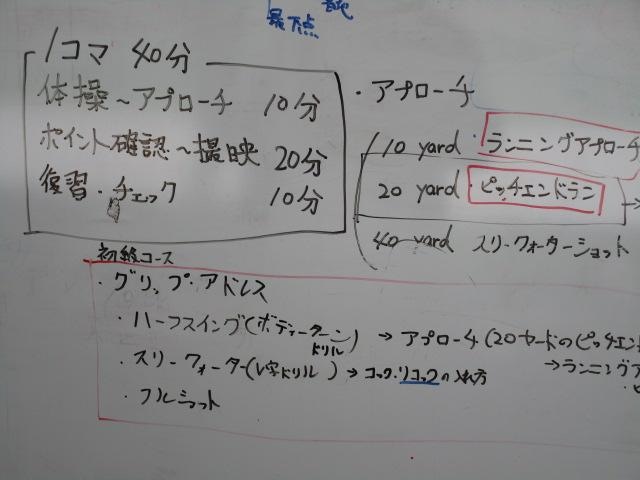 最下点
1コマ 40分
体操〜アプローチ 10分
ポイント確認〜撮映 20分
復習・チェック 10分
・アプローチ
10 yard・ランニングアプローチ
20 yard・ピッチエンドラン
40 yard スリークォーターショット
初級コース
・グリップ・アドレス
・ハーフスイング(ボディーターンドリル) → アプローチ(20ヤードのピッチエンド
・スリークォーター(V字ドリル) → コック・リコックの入れ方
→ランニングア
・フルショット